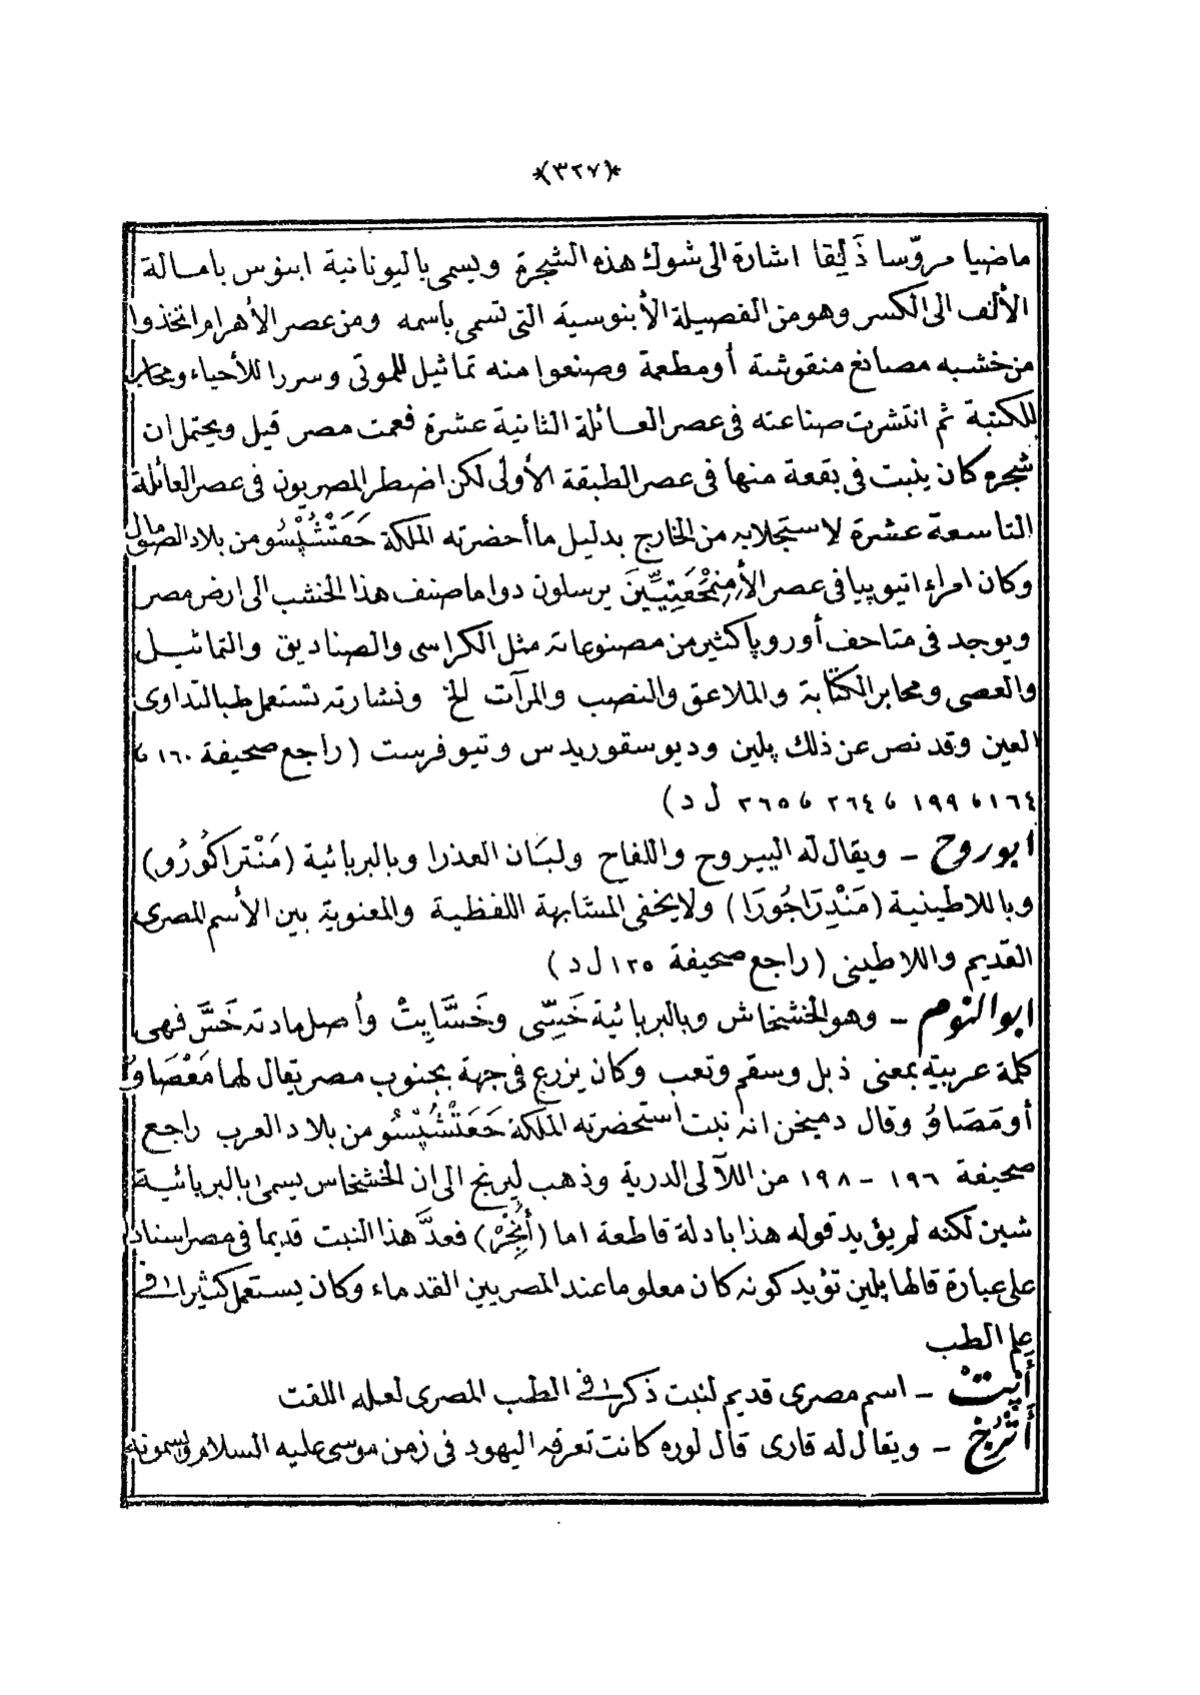 *(٣٢٧)*
ماضيا مروّسا ذَلِقا اشارة الى شوك هذه الشجرة ويسمى باليونانية ابنوس بامالة
الألف الى الكسر وهو من الفصيلة الأبنوسية التى تسمى باسمه ومن عصر الأهرام اتخذوا
من خشبه مصانع منقوشة أو مطعمة وصنعوا منه تماثيل للموتى وسررا للأحياء ومحابر
للكتبة ثم انتشرت صناعته فى عصر العـائلة الثانية عشرة فعمت مصر قيل ويحتمل ان
شجره كان ينبت فى بقعة منها فى عصر الطبقة الأولى لكن اضطر المصريون فى عصر العائلة
التاسعة عشرة لاستجلابه من الخارج بدليل ما أحضرته الملكة حَعَتْشُپْسُو من بلاد الصومال
وكان امراء اتيوپيا فى عصر الأَمِنِمْحَعَتِيِّينَ يرسلون دواما صنف هذا الخشب الى ارض مصر
ويوجد فى متاحف أوروپا كثير من مصنوعاته مثل الكراسى والصناديق والتماثيـل
والعصى ومحابر الكتابة والملاعق والنصب والمرآت الخ ونشارته تستعمل طبا لتداوى
العين وقد نص عن ذلك پلين وديوسقوريدس وتيوفرست (راجع صحيفة ١٦٠ ،
١٦٤ ، ١٩٩ ، ٢٦٤ ، ٢٦٥ ل د)
ابوروح ــ ويقال له اليبروح واللفاح ولبَان العذرا وبالبربائية (مَنْتراكُورُو)
وباللاطينية (مَنْدِرَاجُورَا) ولا يخفى المشابهة اللفظية والمعنوية بين الأسم المصرى
القديم واللاطينى (راجع صحيفة ١٢٥ ل د)
ابوالنوم ــ وهو الخشخاش وبالبربائية خَسِّى وخَسَّايِتْ وأصل مادته خَسَّ فهى
كلمة عربية بمعنى ذبل وسقم وتعب وكان يزرع فى جهة بجنوب مصر يقال لها مَعْصَاوُ
أو مَصَاوُ وقال دميخن انه نبت استحضرته الملكة حَعَتْشُپْسُو من بلاد العرب راجع
صحيفة ١٩٦ ــ ١٩٨ من اللآلى الدرية وذهب ليرنج الى ان الخشخاس يسمى بالبربائيـة
شين لكنه لم يؤيد قوله هذا بادلة قاطعة اما (أُنْجَرْ) فعدَّ هذا النبت قديما فى مصر اسنادا
على عبارة قالها پلين تؤيد كونه كان معلوما عند المصريين القدماء وكان يستعمل كثيرا فى
علم الطب
أپتْ ــ اسم مصرى قديم لنبت ذكر فى الطب المصرى لعله اللفت
أُتْرُجّ ــ ويقال له قارى قال لوره كانت تعرفه اليهود فى زمن موسى عليه السلام ويسمونه